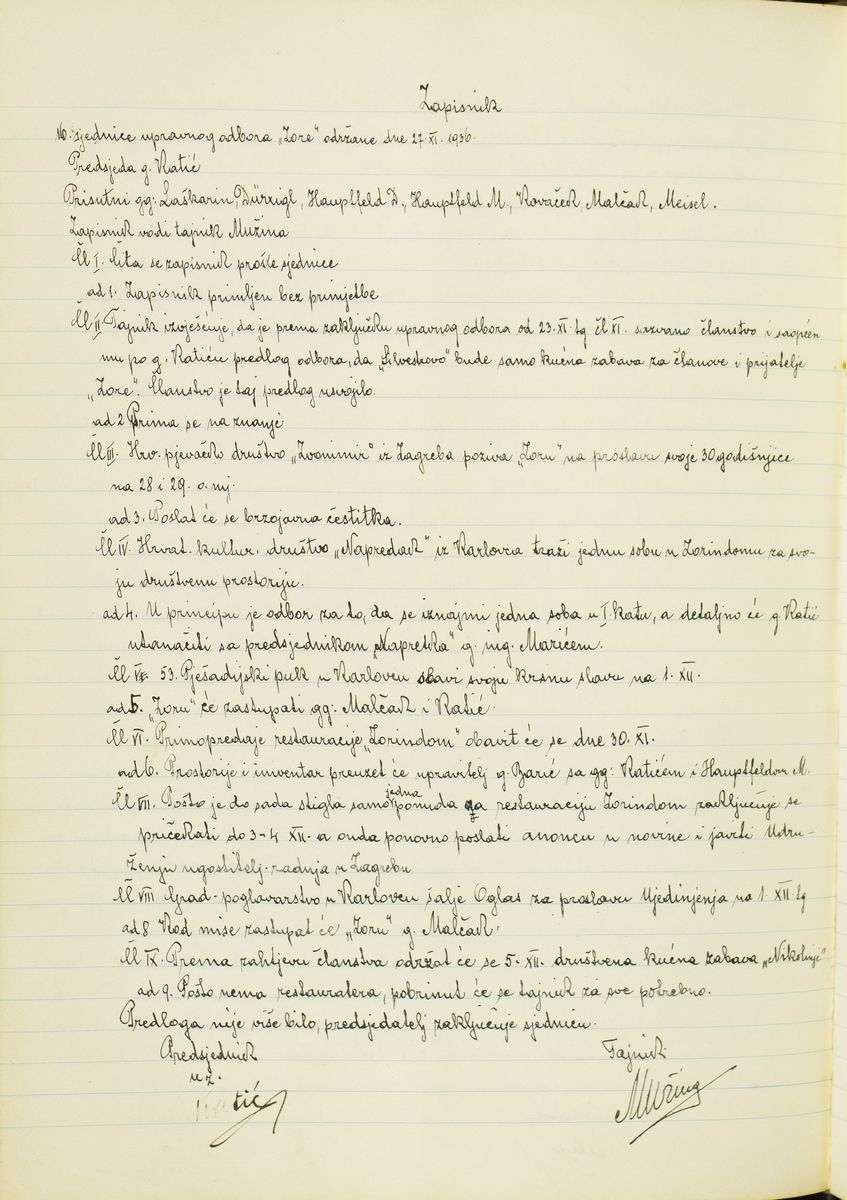 Zapisnik
16. sjednice upravnog odbora „Zore" održane dne 27. XI. 1936.
Predsjeda g. Katić
Prisutni gg: Laškarin, Dürrigl, Hauptfeld D., Hauptfeld M., Kovaček, Malčak, Meisel.
Zapisnik vodi tajnik Mužina
Čl I. Čita se zapisnik prošle sjednice
ad 1. Zapisnik primljen bez primjetbe
Čl II. Tajnik izvješćuje, da je prema zaključku upravnog odbora od 23. XI. tg čl XI. sazvano članstvo i saopćen
mu po g. Katiću predlog odbora, da „Silvestrovo" bude samo kućna zabava za članove i prijatelje
„Zore". Članstvo je taj predlog usvojilo.
ad 2 Prima se na znanje
Čl III. Hrv. pjevačko društvo „Zvonimir" iz Zagreba poziva „Zoru" na proslavu svoje 30 godišnjice
na 28 i 29. o. mj.
ad 3. Poslat će se brzojavna čestitka.
Čl IV. Hrvat. kultur. društvo „Napredak" iz Karlovca traži jednu sobu u Zorindomu za svo-
ju društvenu prostoriju.
ad 4. U principu je odbor za to, da se iznajmi jedna soba u I. katu, a detaljno će g Katić
utanačiti sa predsjednikom „Napretka" g. ing. Marićem.
Čl V. 53. Pješadijski puk u Karlovcu slavi svoju krsnu slavu na 1. XII.
ad 5. „Zoru" će zastupati gg: Malčak i Katić.
Čl VI. Primopredaje restauracije „Zorindom" obavit će se dne 30. XI.
ad 6. Prostorije i inventar preuzet će upravitelj g. Barić sa gg: Katićem i Hauptfeldom M.
Čl VII. Pošto je do sada stigla samo jedna ponuda za restauraciju Zorindom zaključuje se
pričekati do 3-4 XII. a onda ponovno poslati anoncu u novine i javiti Udru-
ženju ugostitelj. radnja u Zagrebu
Čl VIII Grad. poglavarstvo u Karlovcu šalje Oglas za proslavu Ujedinjenja na 1. XII. tg
ad 8 Kod mise zastupat će „Zoru" g. Malčak.
Čl IX. Prema zahtjevu članstva održat će se 5. XII. društvena kućna zabava „Nikolinje"
ad 9. Pošto nema restauratera, pobrinut će se tajnik za sve potrebno.
Predloga nije više bilo, predsjedatelj zaključuje sjednicu.
Predsjednik Tajnik
u z.
tić Mužina